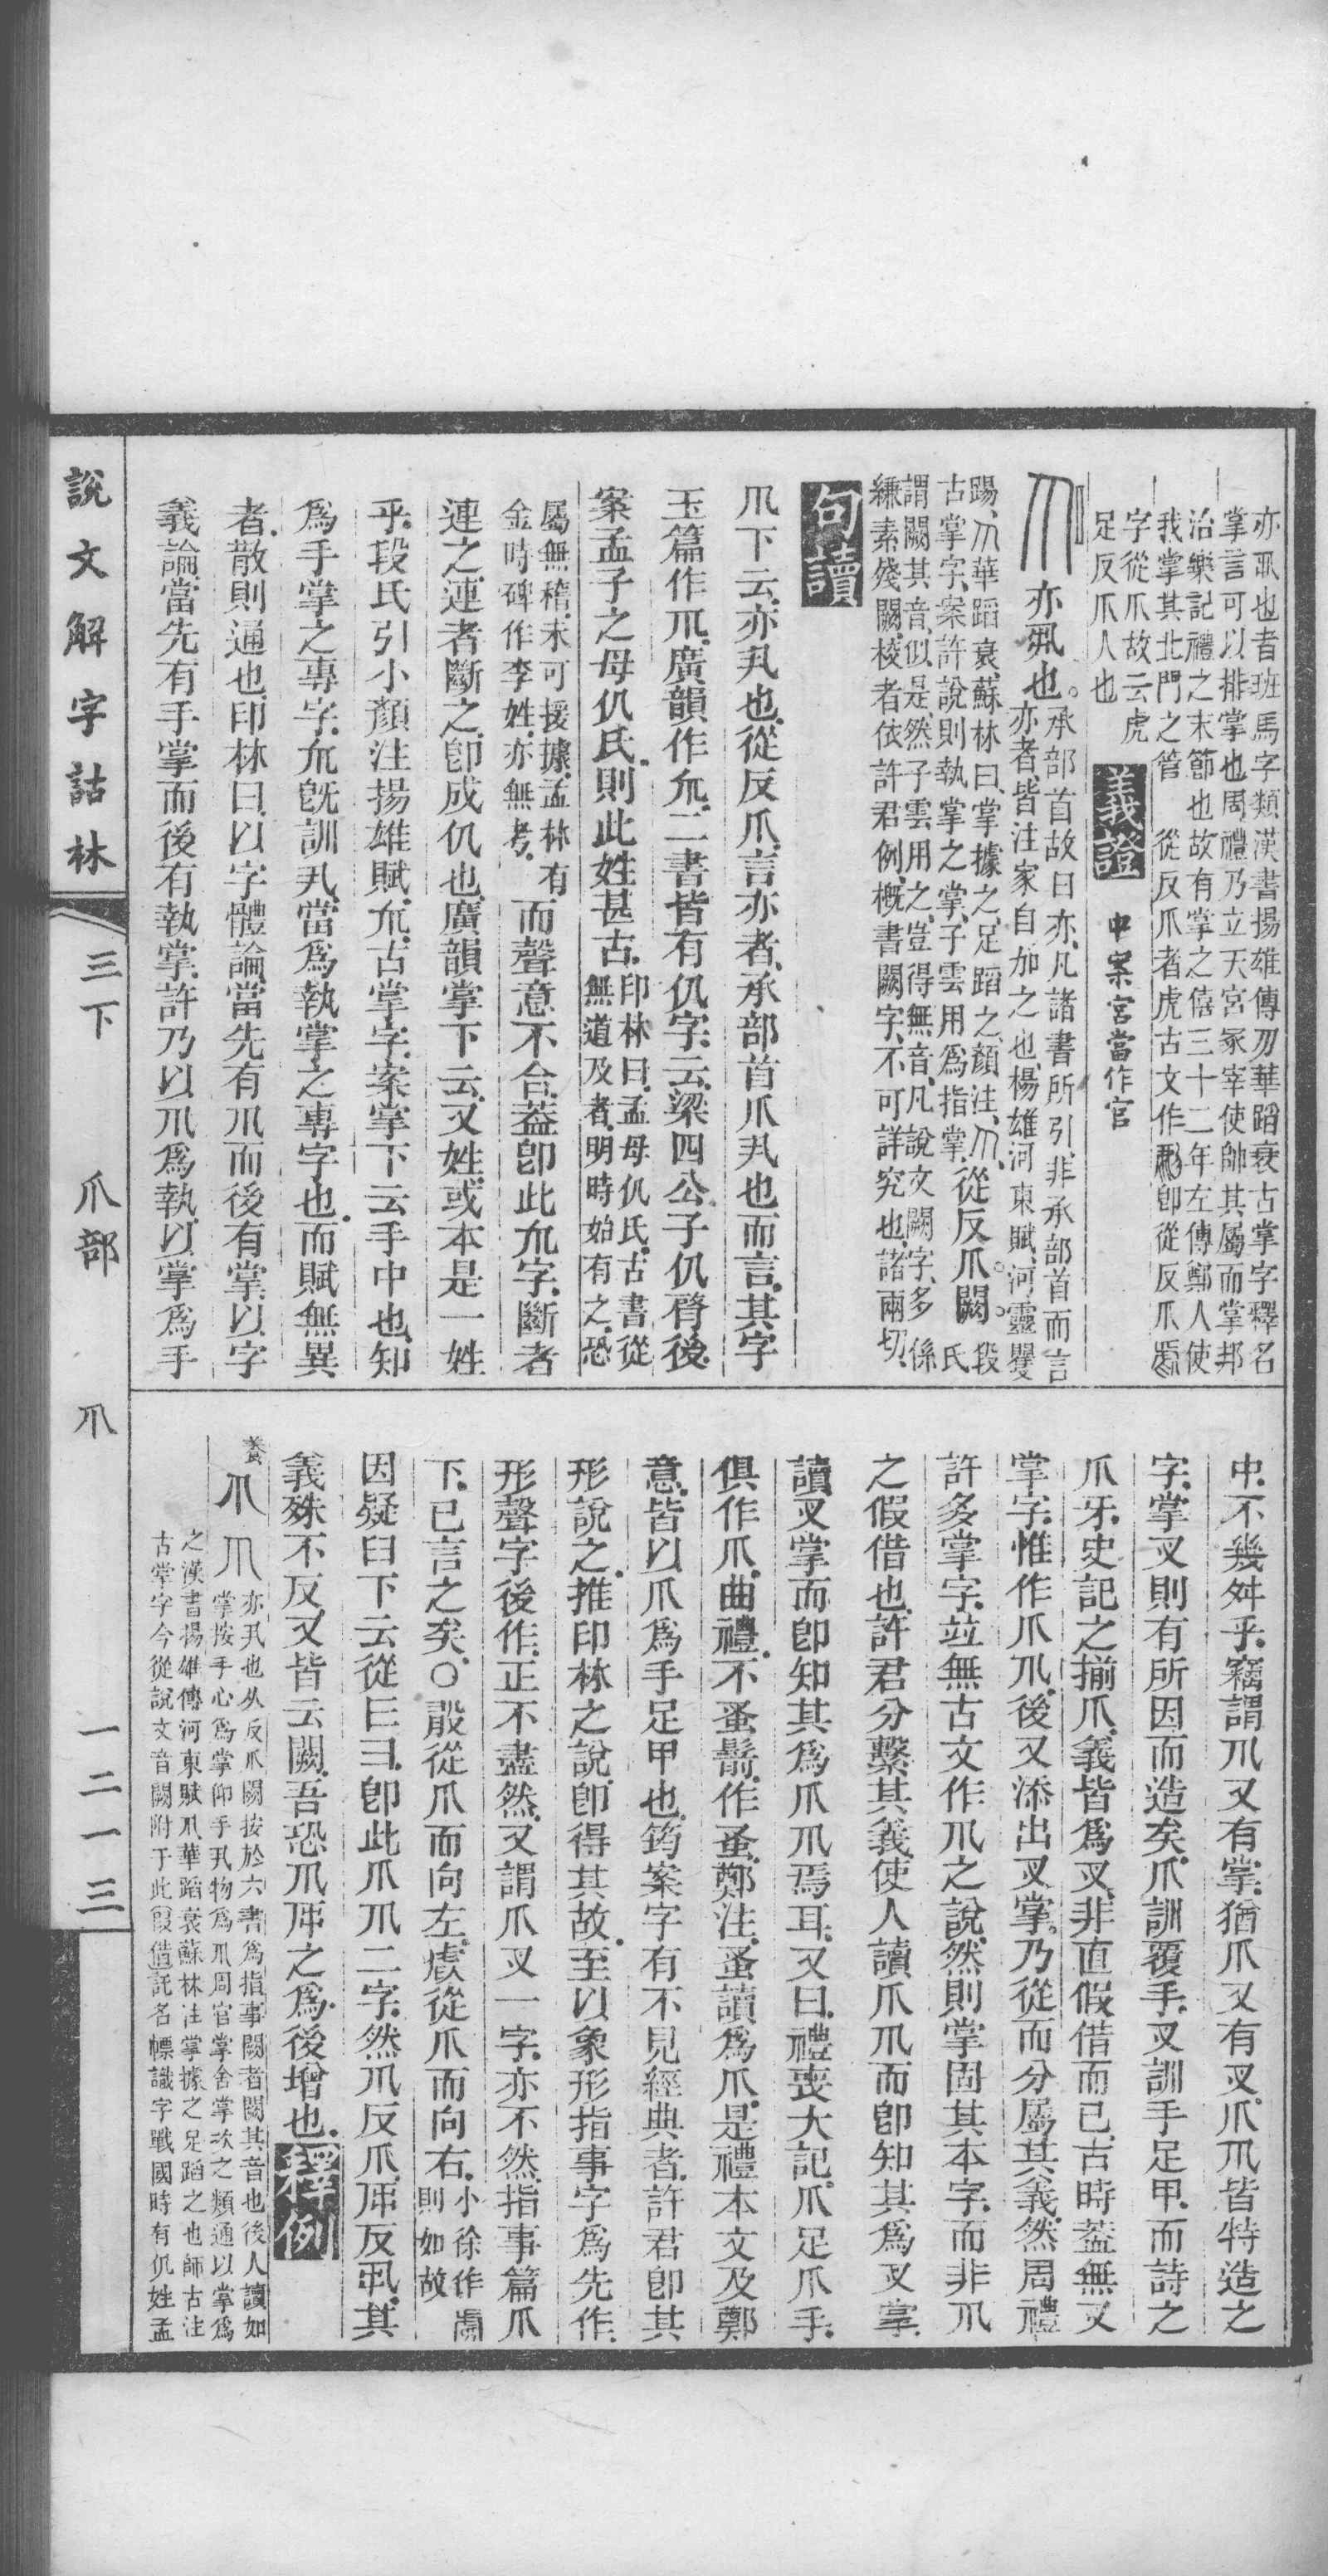 亦丮也者班馬字類漢書揚雄傳爪華蹈衰古掌字釋名
掌言可以排掌也周禮乃立天宮冢宰使帥其屬而掌邦
治樂記禮之末節也故有掌之僖三十二年左傳鄭人使
我掌其北門之管　從反爪者虎古文作即從反爪
字從爪故云虎
足反爪人也
義證
申案宮當作官
亦丮也。
承部首故曰亦凡諸書所引非承部首而言
亦者皆注家自加之也楊雄河東賦河靈矍
踢爪華蹈衰蘇林曰掌據之足蹈之顏注爪
古掌字案許說則執掌之掌子雲用爲指掌
從反爪。闕。
段氏
謂闕其音似是然子雲用之豈得無音凡說文闕字多係
縑素殘闕校者依許君例概書闕字不可詳究也諸兩切
句讀
爪下云亦丮也從反爪言亦者承部首爪丮也而言其字
玉篇作爪廣韻作尣二書皆有仉字云梁四公子仉𦜝後
案孟子之母仉氏則此姓甚古
印林曰孟母仉氏古書從
無道及者明時始有之恐
屬無稽未可援據孟林有
金時碑作李姓亦無考
而聲意不合葢卽此尣字斷者
連之連者斷之卽成仉也廣韻掌下云又姓或本是一姓
乎段氏引小顏注揚雄賦尣古掌字案掌下云手中也知
爲手掌之專字尣旣訓丮當爲執掌之專字也而賦無異
者散則通也印林曰以字體論當先有爪而後有掌以字
義論當先有手掌而後有執掌許乃以爪爲執以掌爲手
中不幾舛乎竊謂爪又有掌猶爪又有叉爪爪皆特造之
字掌叉則有所因而造矣爪訓覆手叉訓手足甲而詩之
爪牙史記之揃爪義皆爲叉非直假借而已古時葢無叉
掌字惟作爪爪後又添出叉掌乃從而分屬其義然周禮
許多掌字竝無古文作爪之說然則掌固其本字而非爪
之假借也許君分繫其義使人讀爪爪而卽知其爲叉掌
讀叉掌而卽知其爲爪爪焉耳又曰禮喪大記爪足爪手
俱作爪曲禮不蚤鬋作蚤鄭注蚤讀爲爪是禮本文及鄭
意皆以爪爲手足甲也筠案字有不見經典者許君卽其
形說之推印林之說卽得其故至以象形指事字爲先作
形聲字後作正不盡然又謂爪叉一字亦不然指事篇爪
下已言之矣〇從爪而向左從爪而向右
小徐作
則如故
因疑𦥑下云從卽此爪爪二字然爪反爪反丮其
義殊不反又皆云闕吾恐爪之爲後增也
釋例
爪
亦丮也从反爪闕按於六書爲指事闕者闕其音也後人讀如
掌按手心爲掌仰手丮物爲爪周官掌舍掌次之類通以掌爲
之漢書揚雄傳河東賦爪華蹈衰蘇林注掌據之足蹈之也師古注
古掌字今從說文音闕附于此叚借託名幖識字戰國時有仉姓孟
說文解字詁林
三下
爪部
爪
一二一三